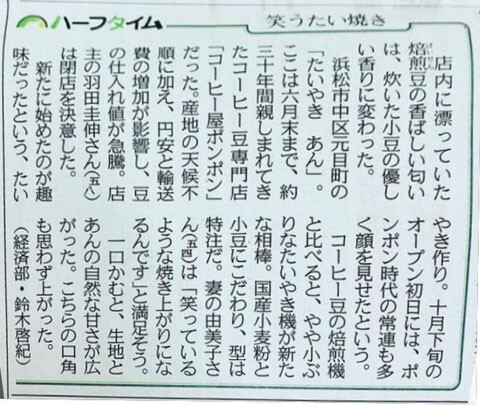 ハーフタイム
笑うたい焼き
店内に漂っていた
焙煎豆の香ばしい匂い
は、炊いた小豆の優し
い香りに変わった。
浜松市中区元目町の
「たいやき あん」。
ここは六月末まで、約
三十年間親しまれてき
たコーヒー豆専門店
「コーヒー屋ポンポン」
だった。産地の天候不
順に加え、円安と輸送
費の増加が影響し、豆
の仕入れ値が急騰。店
主の羽田圭伸さん(五八)
は閉店を決意した。
新たに始めたのが趣
味だったという、たい
やき作り。十月下旬の
オープン初日には、ポ
ンポン時代の常連も多
く顔を見せたという。
コーヒー豆の焙煎機
と比べると、やや小ぶ
りなたいやき機が新た
な相棒。国産小麦粉と
小豆にこだわり、型は
特注だ。妻の由美子さ
ん(五四)は「笑っている
ような焼き上がりにな
るんです」と満足そう。
一口かむと、生地と
あんの自然な甘さが広
がった。こちらの口角
も思わず上がった。
(経済部・鈴木啓紀)